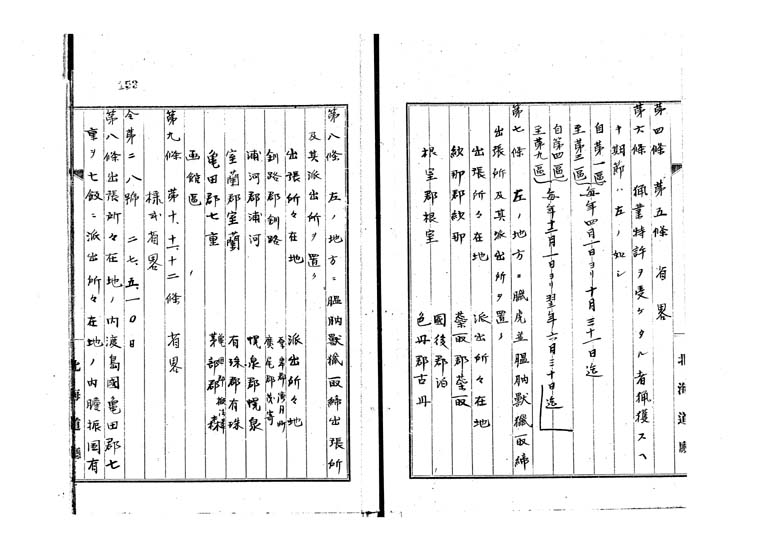 第四條　第五條　省畧
第六條　猟業特許ヲ受ケタル者猟獲スヘ
キ期節ハ左ノ如シ
自第一區
至第三區　毎年四月一日ヨリ十月三十一日迄
自第四區
至第九區　毎年十一月一日ヨリ翌年六月三十日迄
第七條　左ノ地方ニ臘虎並膃肭獣猟取締
出張所及其派出所ヲ置ク
出張所々在地　派出所々在地
紗那郡紗那　蘂取郡蘂取
國後郡泊
根室郡根室　色丹郡古丹
北海道廳
第八條　左ノ地方ニ膃肭獣猟取締出張所
及其派出所ヲ置ク
出張所々在地　派出所々在地
釧路郡釧路　厚岸郡湾月町
廣尾郡茂寄
浦河郡浦河　幌泉郡幌泉
室蘭郡室蘭　有珠郡有珠
亀田郡七重　茅部郡森
函館區
第九條　第十、十一、十二條　省畧
様式省畧
仝第二八號　二七、五、一〇日
第八條出張所々在地ノ内渡島國亀田郡七
重ヲ七飯ニ派出所々在地ノ内膽振国有
北海道廳
153